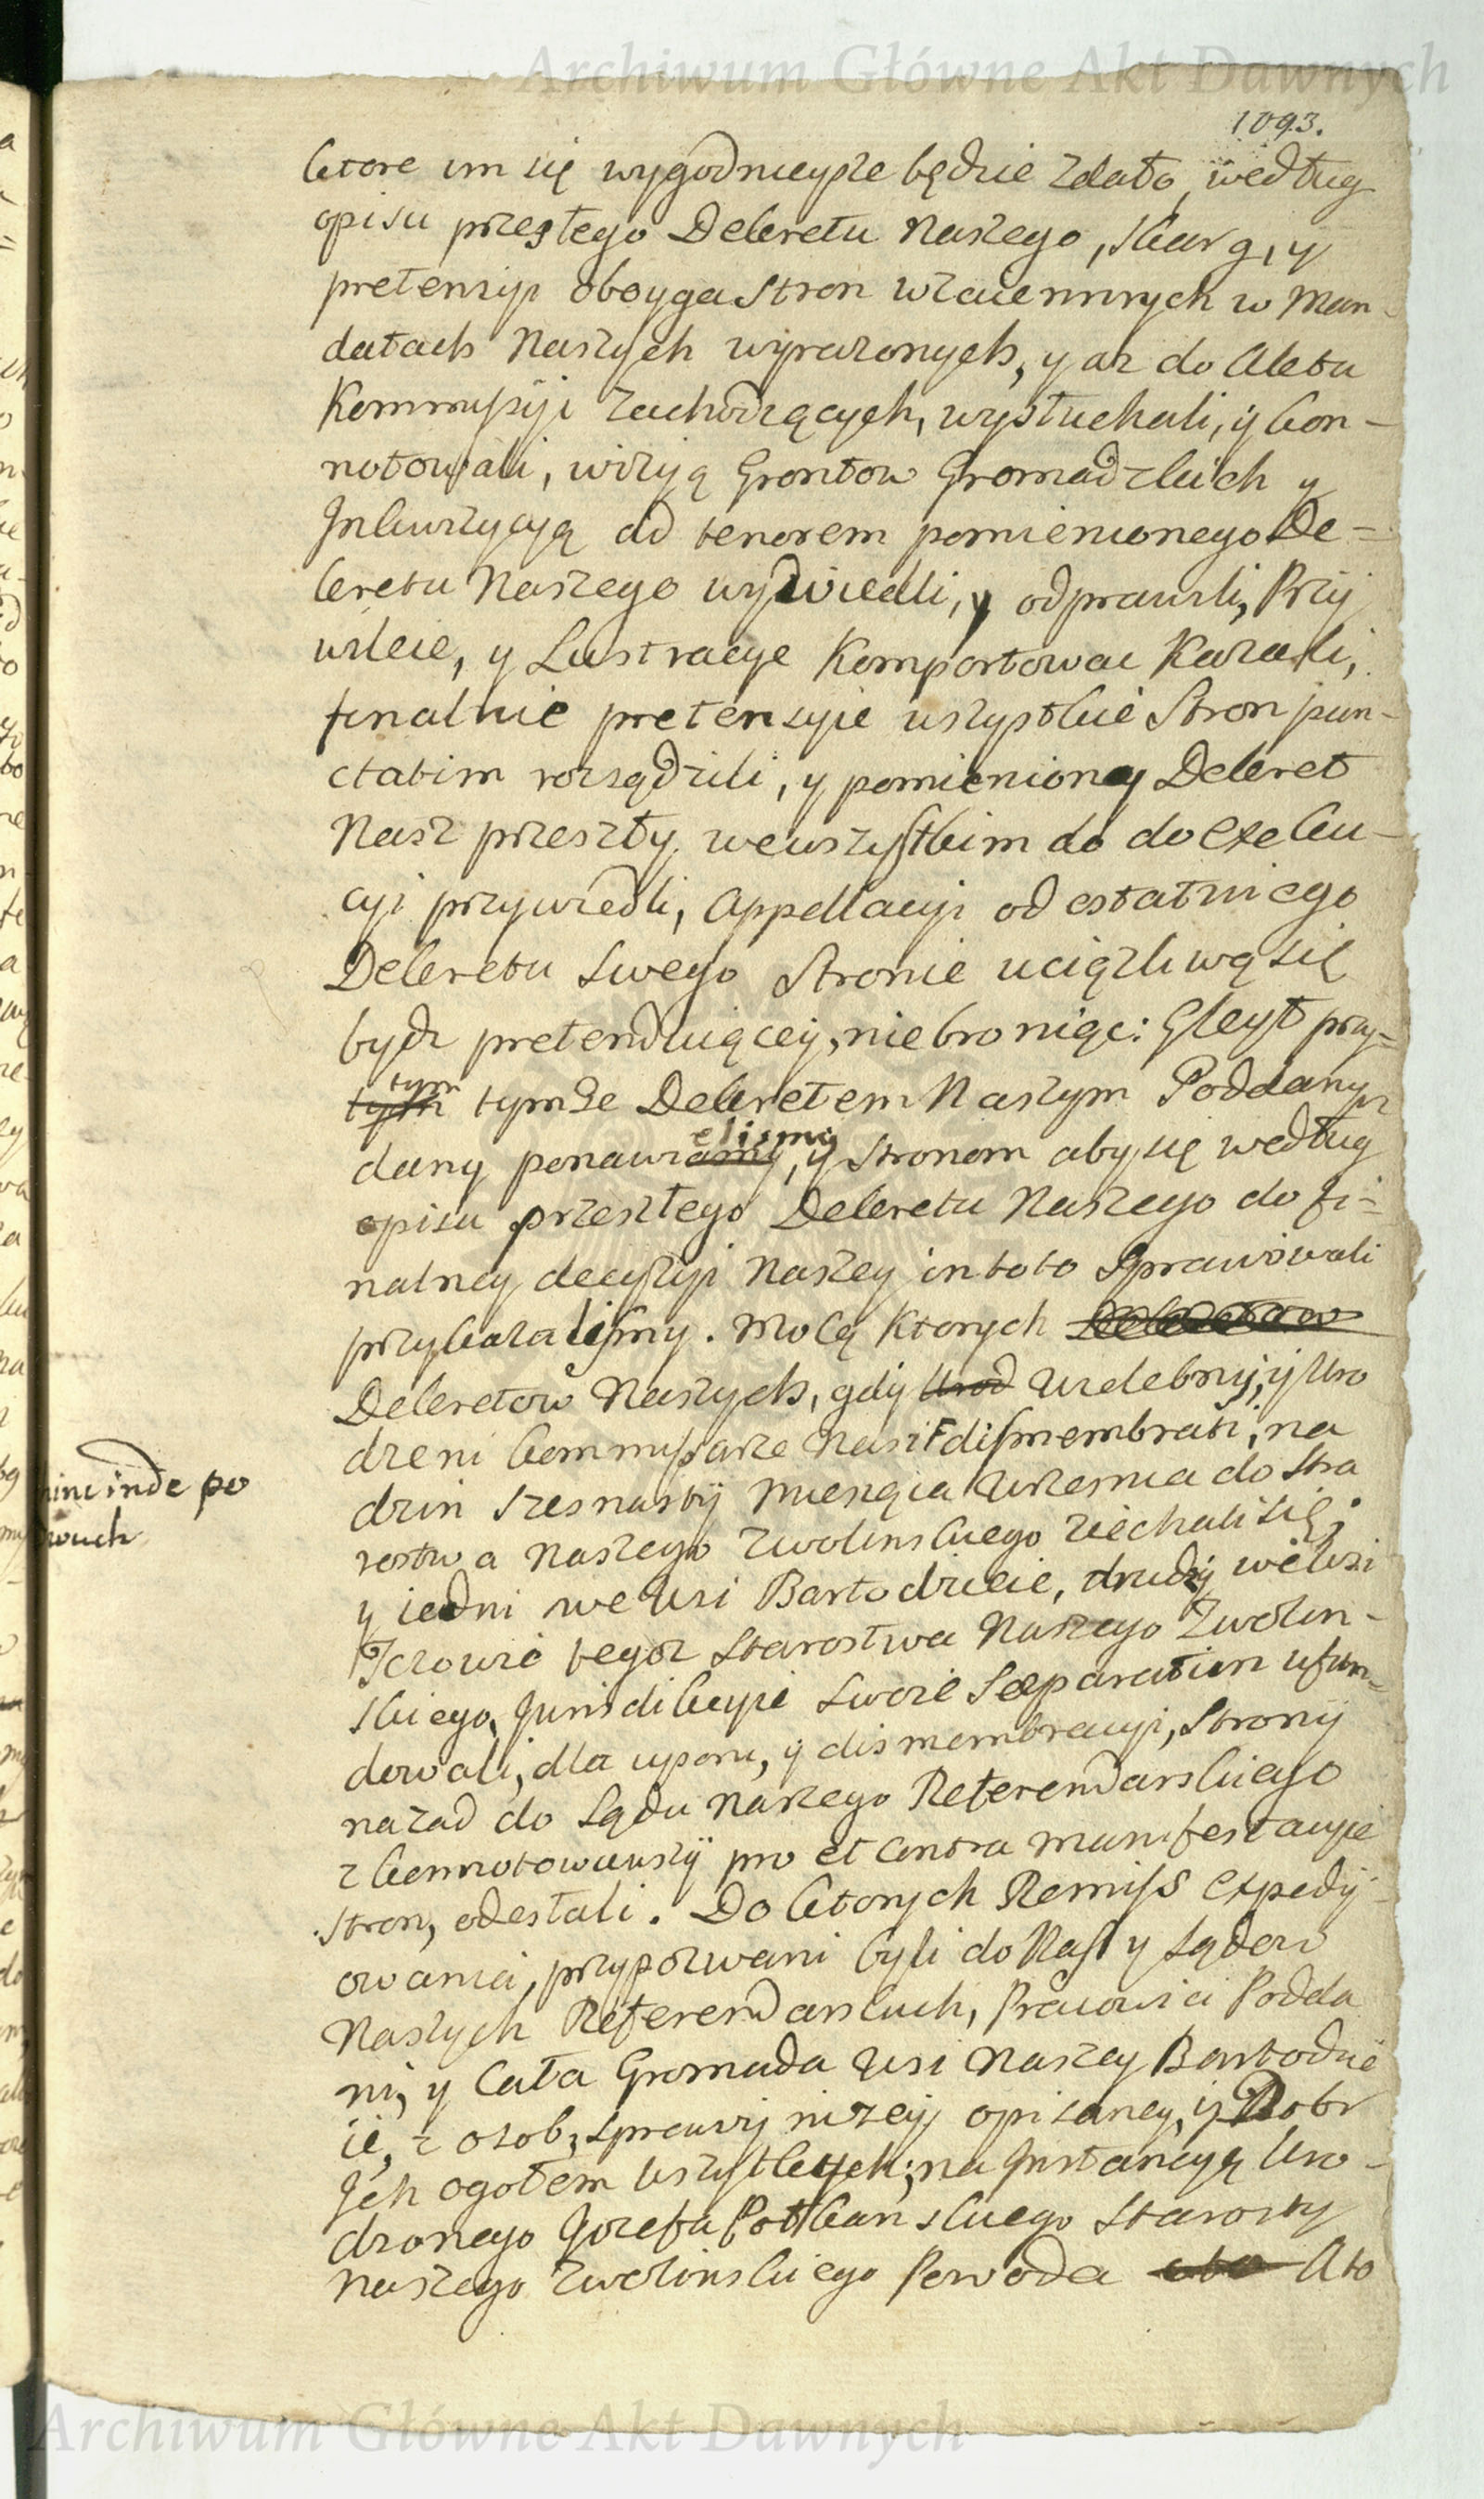 Archiwum Główne Akt Dawnych
1093.
ktore im się wygodnieysze będzie zdało, według
opisu przeszłego Dekretu Naszego, skarg, y
pretensyi oboyga Stron wzaiemnych w Man-
datach Naszych wyrazonych, y az do Aktu
Kommissyi zachodzących, wysłuchali, y kon-
notowali, wizyą Grontow Gromadzkich y
Inkwizycyą ad tenorem pomienionego De=
kretu Naszego wywiedli, y odprawili, Przy
wileie, y Lustracye Komportowac Kazali,
finalnie pretensyie wszystkie Stron pun-
ctatim rozsądzili, y pomieniony Dekret
Nasz przeszły we wszystkim do do exeku-
cyi przywiedli, Appellacyi od ostatniego
Dekretu swego Stronie uciązliwą się
bydz pretenduiącey, nie broniąc: Gleyt przy=
tym
tymże Dekretem Naszym Poddanym
elismy
dany ponawiamy, y Stronom aby się według
opisu przeszłego Dekretu Naszego do fi=
nalney decyzyi Naszey in toto sprawowali
przykazalismy. Mocą Ktorych
Dekretow Naszych, gdy Urod Wielebny, y Uro
dzeni Kommissarze Nasi dismembrati, na
dzin szesnasty Miesząca Wrzesnia do Sta
hinc inde po
rostwa Naszego Zwolinskiego ziechali się,
y iedni we wsi Bartodzieie, drudzy we wsi
Jczowie tegoz Starostwa Naszego Zwolin-
skiego, Jurisdikcyie swoie separatim ufun=
dowali, dla uporu, y dismembracyi, Strony
nazad do Sądu Naszego Referendarskiego
zkonnotowawszy pro et contra manifestacyie
Stron, odesłali. Do ktorych Remiss expedy-
owania, przypozwani byli do Nas y Sądow
Naszych Referendarskich, Pracowici Podda
ni, y Cała Gromada wsi Naszey Bartodzie
ie, z osob, sprawy nizey opisaney, y Dobr
Jch ogołem wszystkich; na Jnstancyą Uro-
dzonego Jozefa Potkanskiego Starosty
Naszego Zwolinskiego Powoda Ato
Archiwum Główne Akt Dawnych